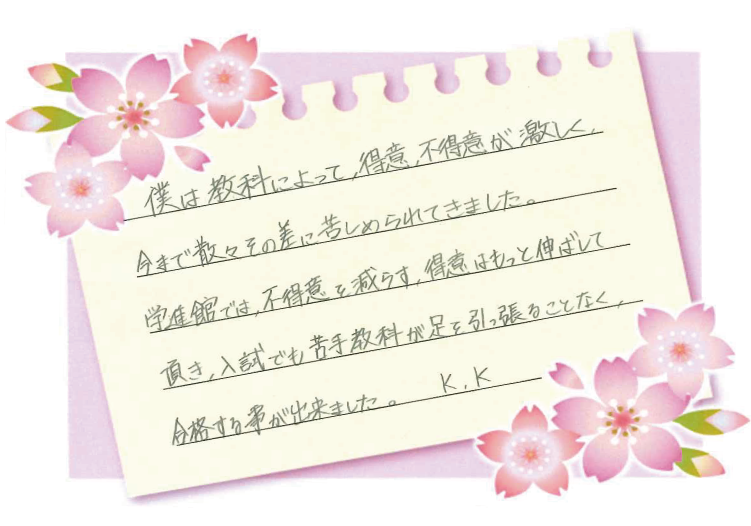 僕は教科によって、得意、不得意が激しく、
今まで散々その差に苦しめられてきました。
学進館では、不得意を減らす、得意はもっと伸ばして
頂き、入試でも苦手教科が足を引っ張ることなく、
合格する事が出来ました。 K.K